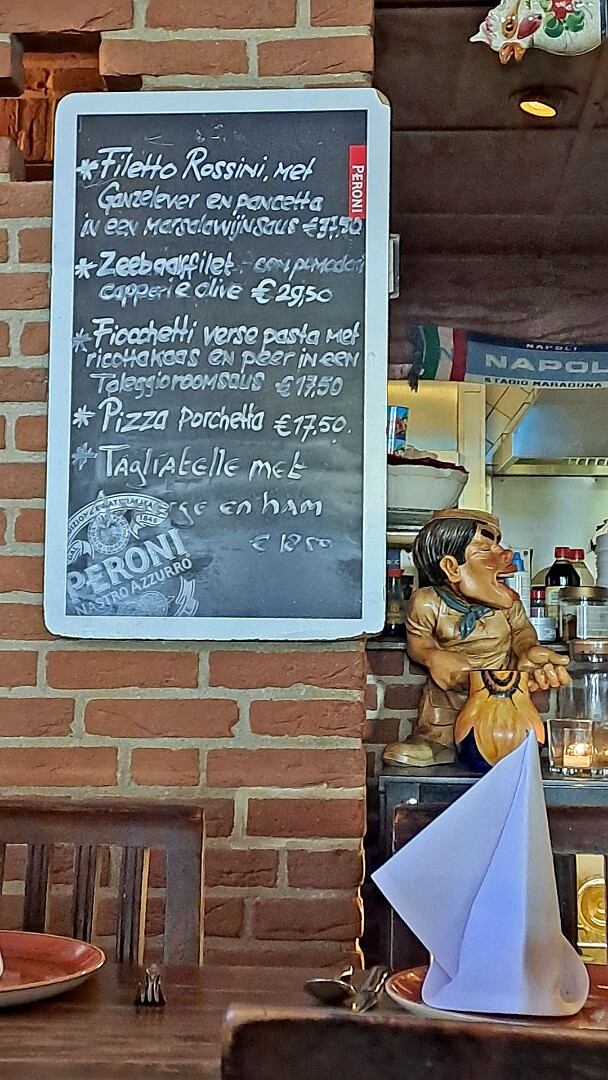 *Filetto Rossini, met
Ganzelever en pancetta
in een Marsalawijnsaus €37,50
*Zeebaarsfilet een pomodori
capperi e olive €29,50
*Fiocchetti verse pasta met
ricottakaas en peer in een
Taleggioroomsaus €17,50
*Pizza porchetta €17.50.
*Tagliatelle met
en ham
€ 18 50
PERONI
PERONI
NASTRO AZZURRO
1846
NAPOLI
NAPOL
STADIO MARADONA